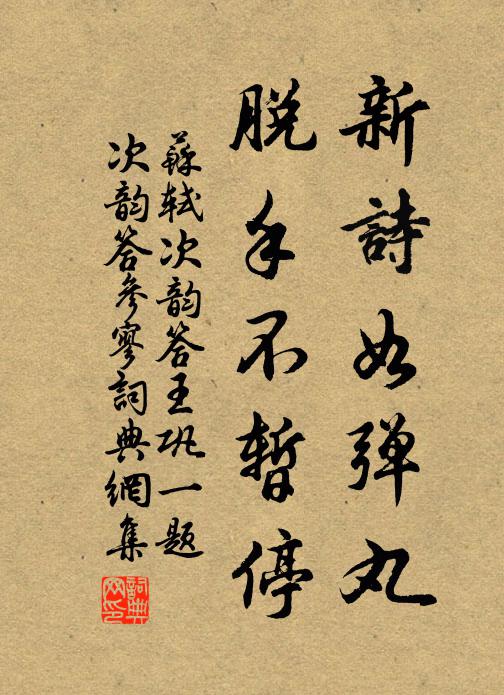 新詩如彈丸
脫手不暫停
蘇軾次韵答王巩一题
次韵答參寥詞典網集
詞典網印